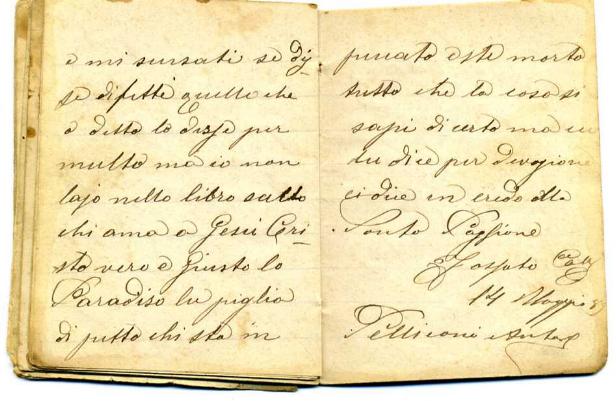 e mi scusati se dj-
se difetti quello che
e ditto lo disse per
multo ma io non
lajo nello libro salto
chi ama a Gesù Cri-
sto vero e Giusto lo
Paradiso lu piglia
di petto chi sta in
puicato este morto
tutto che la cosa si
sapi di certo ma cu
lu dice per divozione
ci dice un credo alla
Santa Passione
14 Maggio
Pelliconi Anto